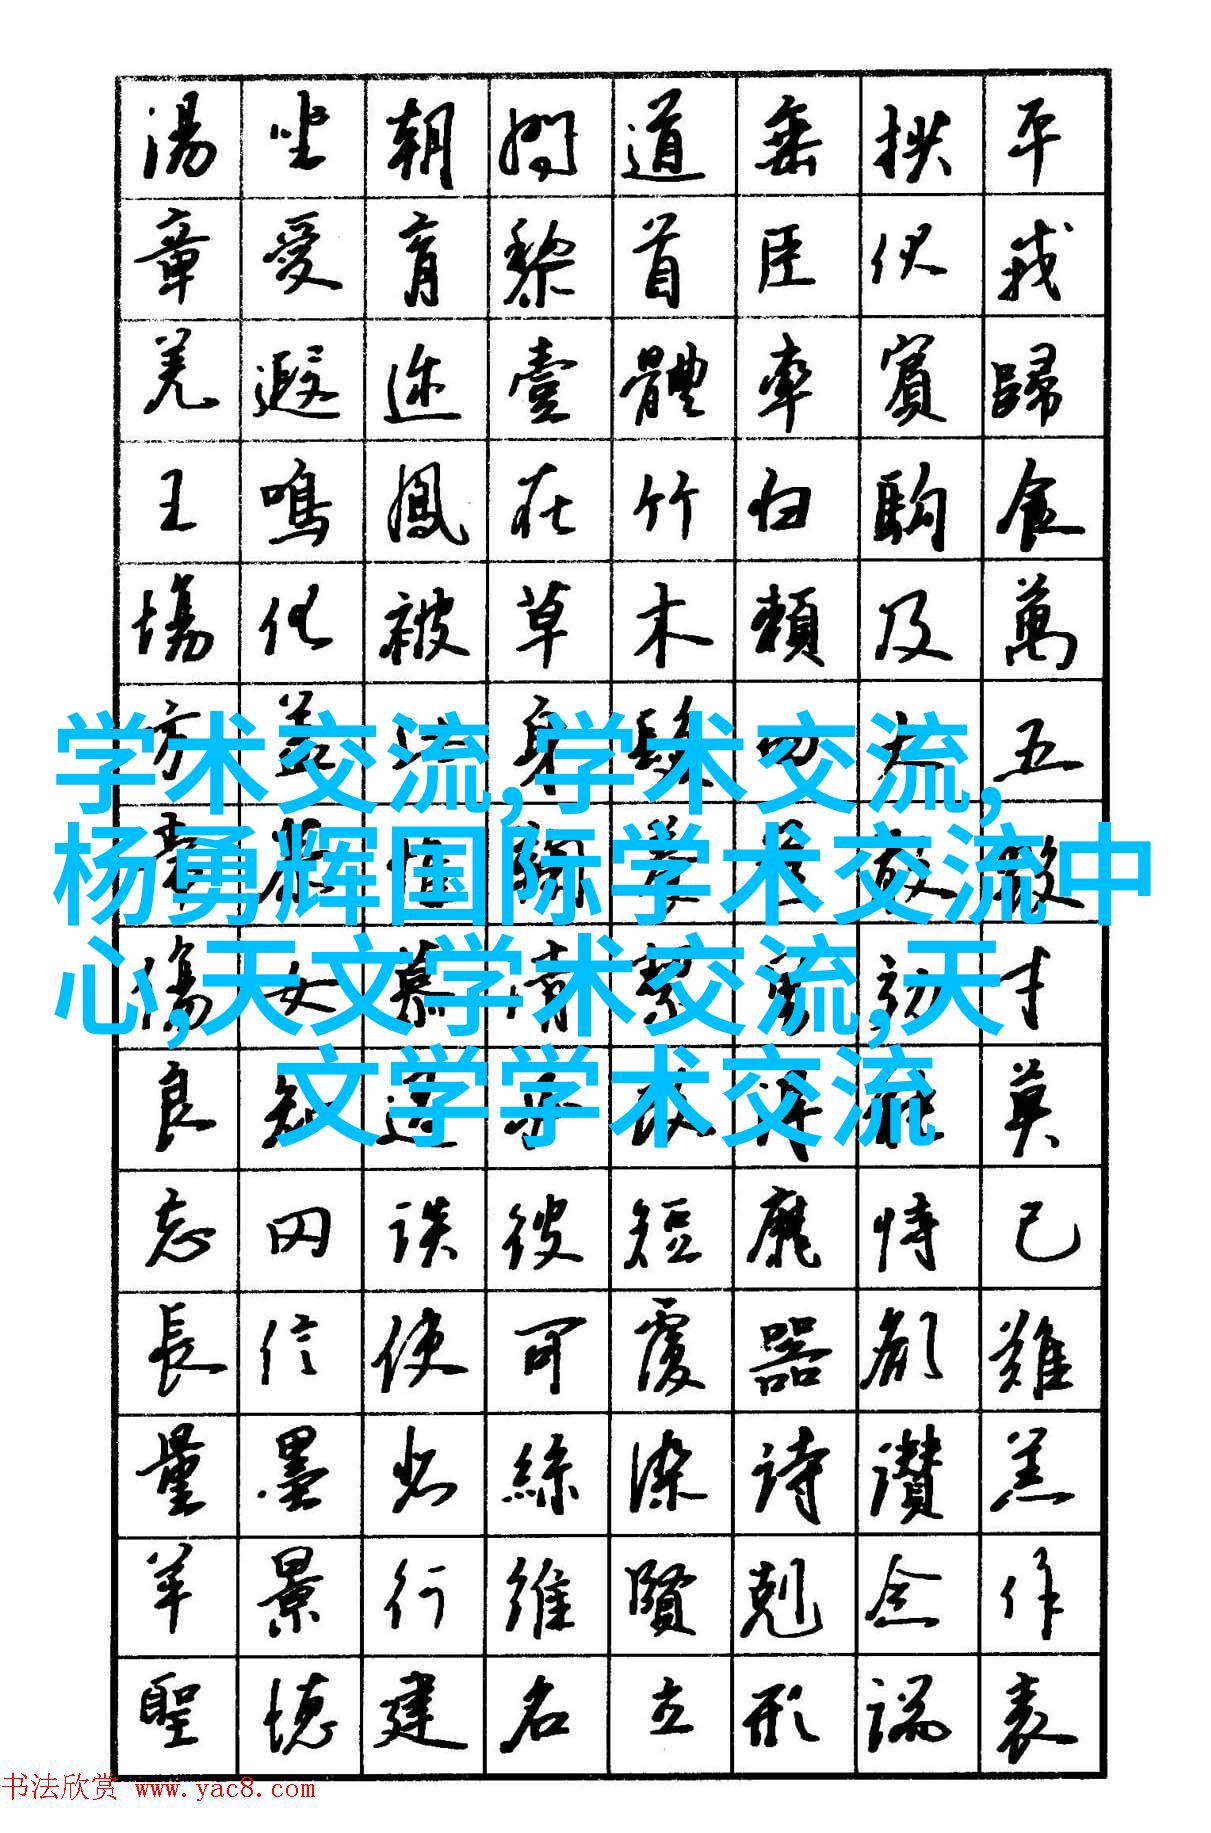 湯坐朝問道垂拱平
章愛育黎首臣伏戎
羌遐迩壹體率賓歸
王鳴鳳在竹白駒食
場化被草木賴及萬
方蓋此身髮四大五
学术交流,学术交流,
杨勇辉国际学术交流中
心,天文学术交流,天
文学学术交流
傷女慕清潔男效才
良知過必改得能莫
忘罔談彼短靡恃己
長信使可覆器欲難
量墨悲絲染詩讚羔
羊景行維賢剋念作
聖德建名立形端表
书法欣赏 www.yac8.com